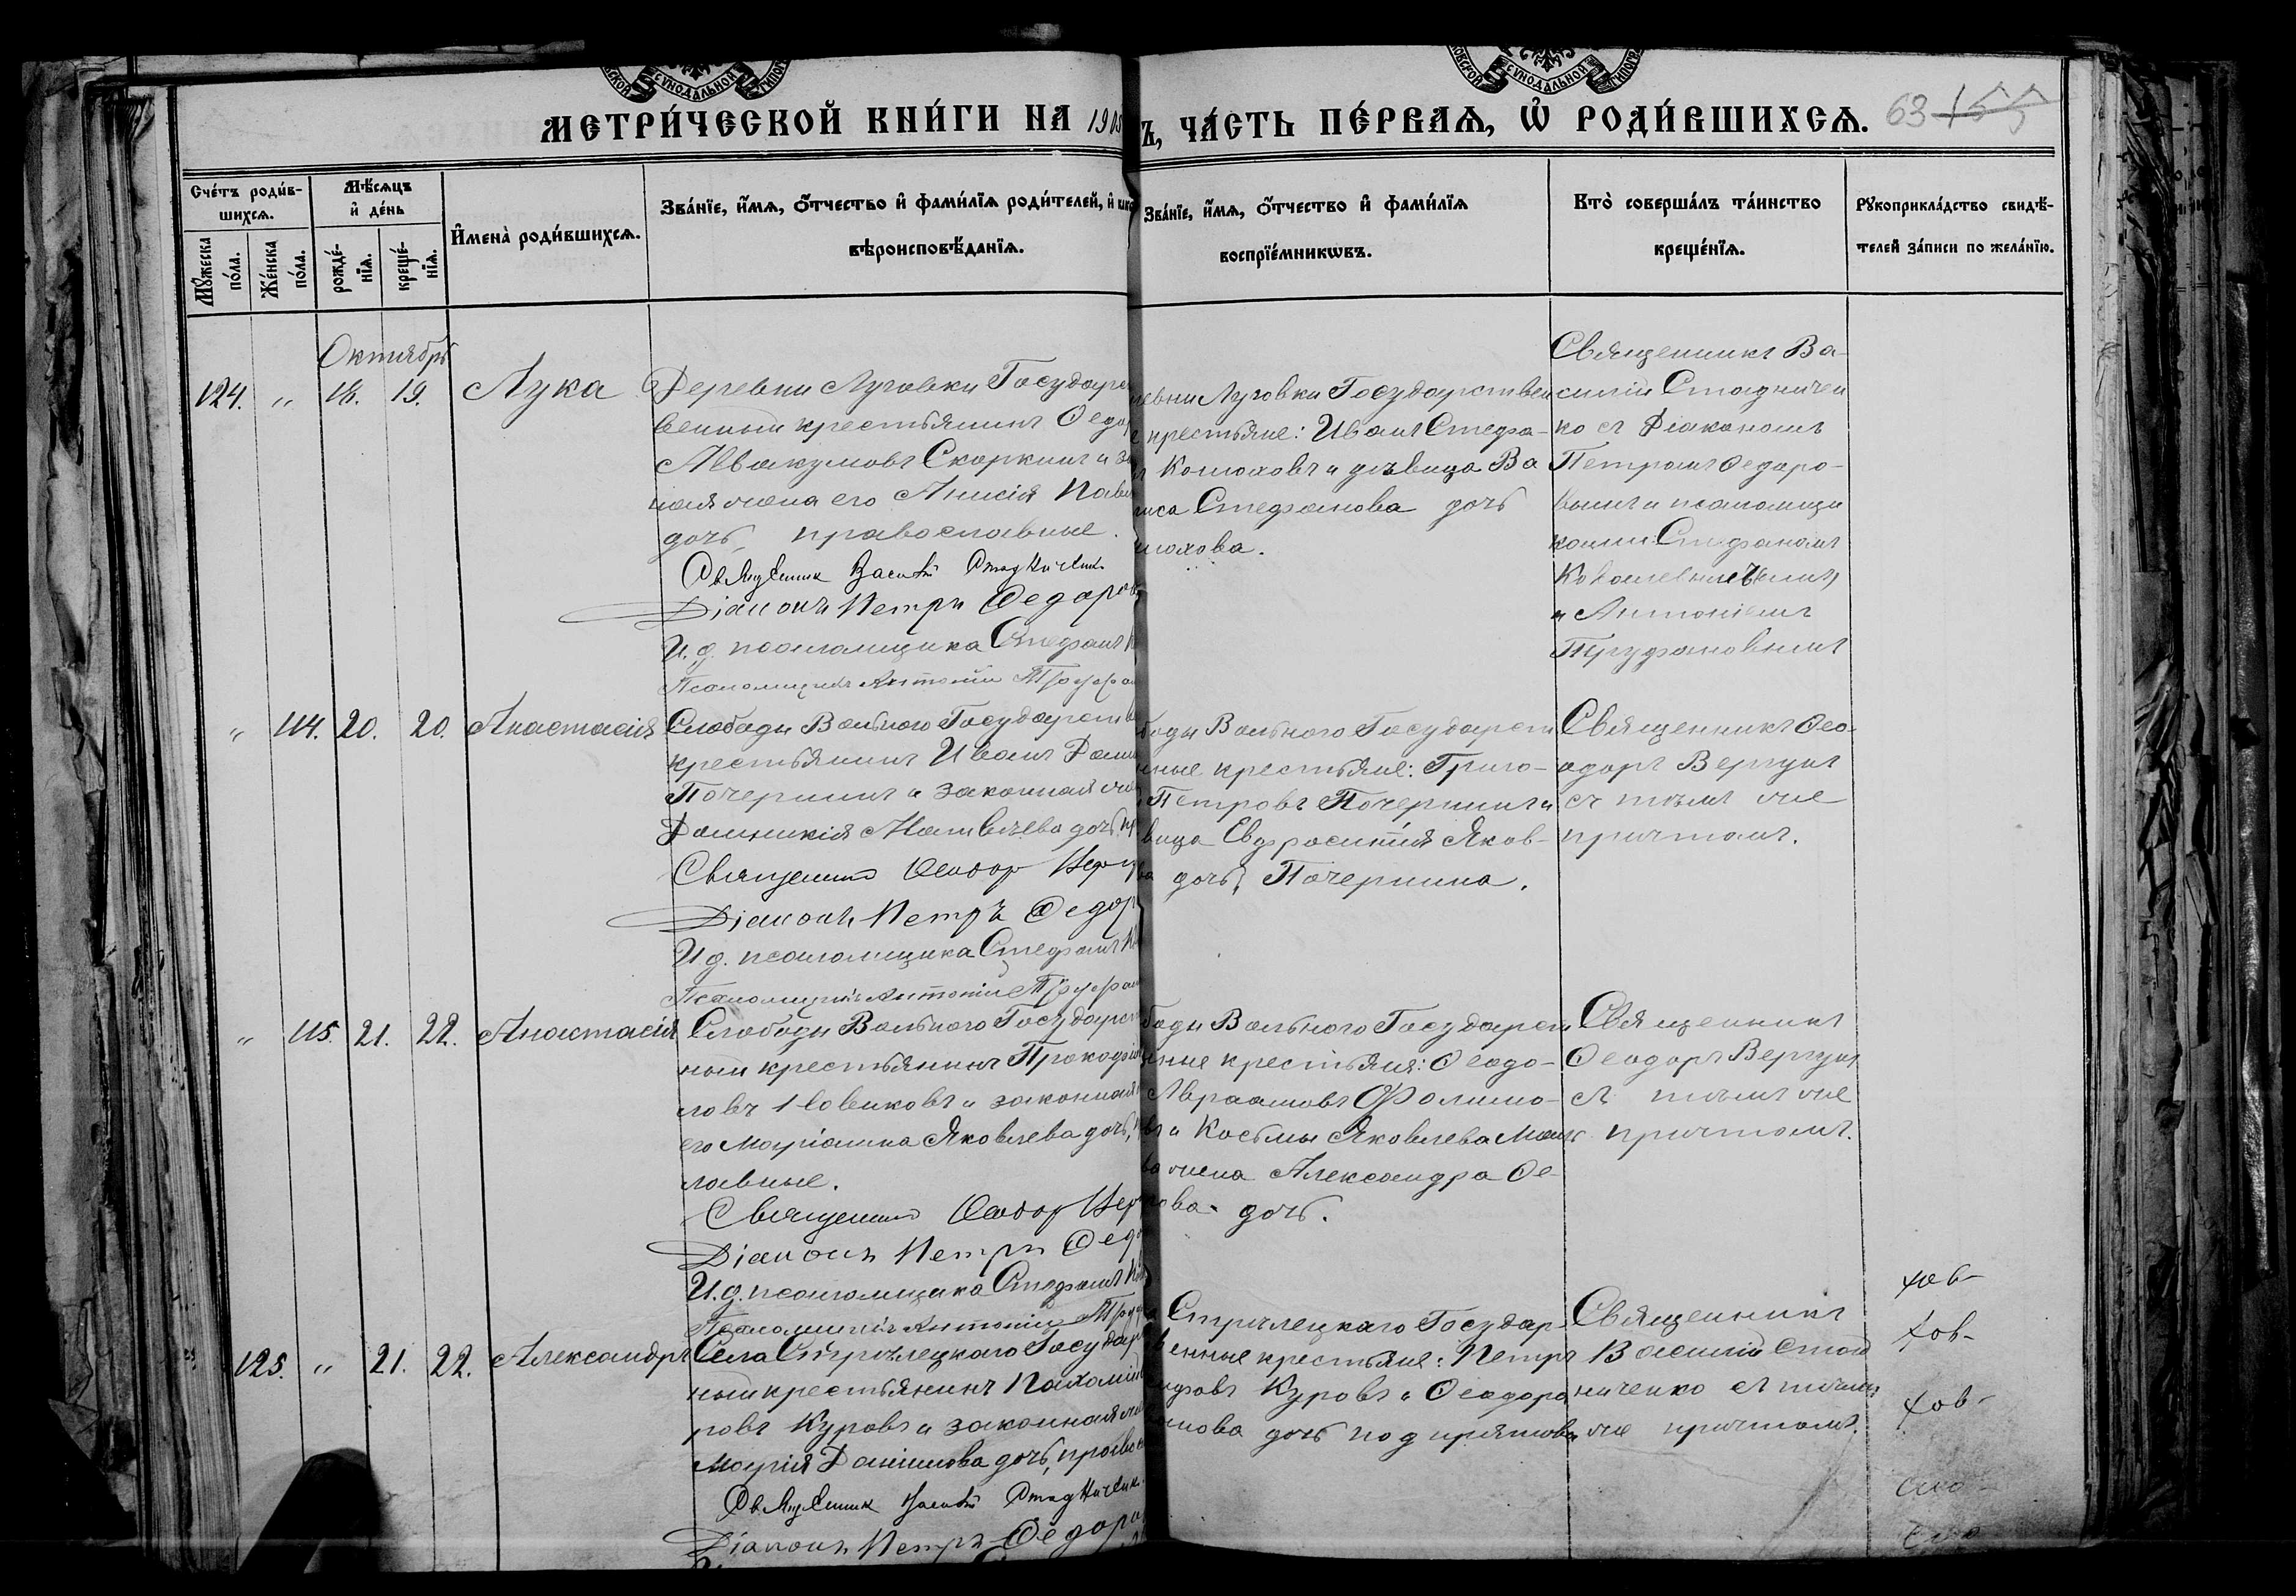 МЕТРИ́ЧЕСКОЙ КНИ́ГИ НА 190
Ъ, ЧА́СТЬ ПЕ́РВАѦ, Ѡ҆ РОДИ́ВШИХСѦ. 63
Сче́тъ роди́в-
шихсѧ.
Мꙋ́жеска по́ла.
Же́нска по́ла.
Мѣ́сѧцъ
и҆ де́нь
рожде́-
нїѧ.
креще́-
нїѧ.
И҆мена̀ роди́вшихсѧ.
Зва́нїе, и҆́мѧ, ѻ҆́тчество и҆ фами́лїѧ роди́телей, и҆
вѣроисповѣ́данїѧ.
Зва́нїе, и҆́мѧ, ѻ҆́тчество и҆ фами́лїѧ
воспрїе́мникѡвъ.
Кто̀ соверша́лъ та́инство
креще́нїѧ.
Рꙋкоприкла́дство свидѣ́-
телей за́писи по жела́нїю.
Октябрь
124. " 18. 19. Лука
Деревни Луговки Государст
венный крестьянинъ Ѳедор
Аввакумовъ Скоркинъ и за
ная жена его Анисія Павл
дочь, православные.
Священник Василій Стадничен
Діаконъ Петръ Ѳедоров
И. д. псаломщика Стефанъ К
Псаломщикъ Антоній Труфан
евни Луговки Государствен
крестьяне: Иванъ Стефа-
Конюховъ и дѣвица Ва
иса Стефанова дочь
нюхова.
Священникъ Ва-
силій Стадничен
ко съ Діакономъ
Петромъ Ѳедоро-
вымъ и псаломщи
ками: Стефаномъ
и Антоніемъ
Труфановымъ
" 114. 20. 20. Анастасія
Слободы Вольного Государств
крестьянинъ Иванъ
Почернинъ и законная же
Домникія Матвѣева дочь, пр
Священник Ѳеодор Вергу
Діаконъ Петръ Ѳедор
И д. псаломщика Стефанъ К
Псаломщикъ Антоній Труфан
боды Вольного Государст
ные крестьяне: Григо-
Петровъ Почернинъ и
вица Евфросинія Яков-
ва дочь Почернина.
Священникъ Ѳео-
доръ Вергунъ
съ тѣмъ же
причтомъ.
" 115. 21. 22. Анастасія
Слободы Вольного Государст
ный крестьянинъ Прокофій
ловъ Новиковъ и законная
его Маріанна Яковлева дочь,
лавные.
Священник Ѳеодор Вер
Діаконъ Петръ Ѳедо
И. д. псаломщика Стефанъ К
Псаломщикъ Антоній Труф
боды Вольного Государст
ные крестьяне: Ѳеодо-
Авраамовъ Фолимо-
въ и Косьмы Яковлева
ва жена Александра Ѳе-
рова дочь.
Священникъ
Ѳеодоръ Вергунъ
съ тѣмъ же
причтомъ.
125. " 21. 22. Александръ
Села Стрѣлецкаго Государ
ный крестьянинъ Пахомій
ровъ Куровъ и законная же
Марія Даніилова дочь, правос
Священник Василій Стадничен
Діаконъ Петръ Ѳедоро
Стрѣлецкаго Государ-
венные крестьяне: Петръ
Куровъ и Ѳеодора
нова дочь
Священникъ
Василій Стад
ниченко съ тѣмъ
же причтомъ.